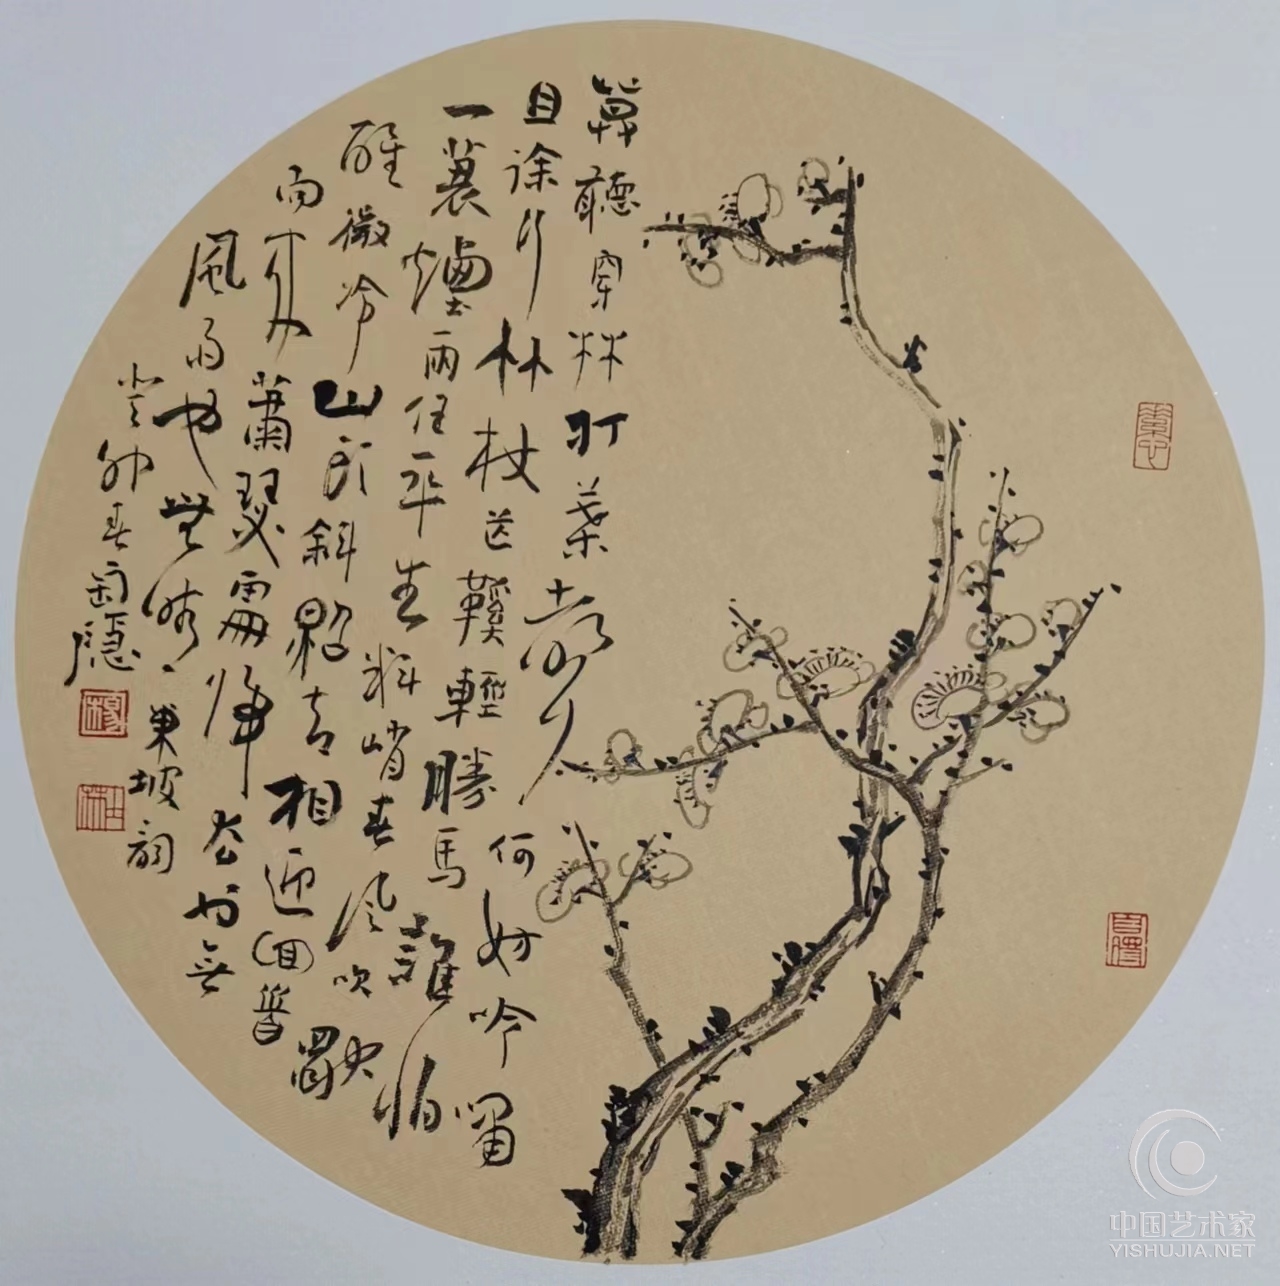 莫聽穿林打葉聲何妨吟嘯
且徐行竹杖芒鞋輕勝馬誰怕
一蓑煙雨任平生料峭春風吹
醒微冷山頭斜照相迎回首
向來蕭瑟處歸去也無
風雨也無晴 東坡詞
癸卯春隱
中国艺术家
YISHUJIA.NET